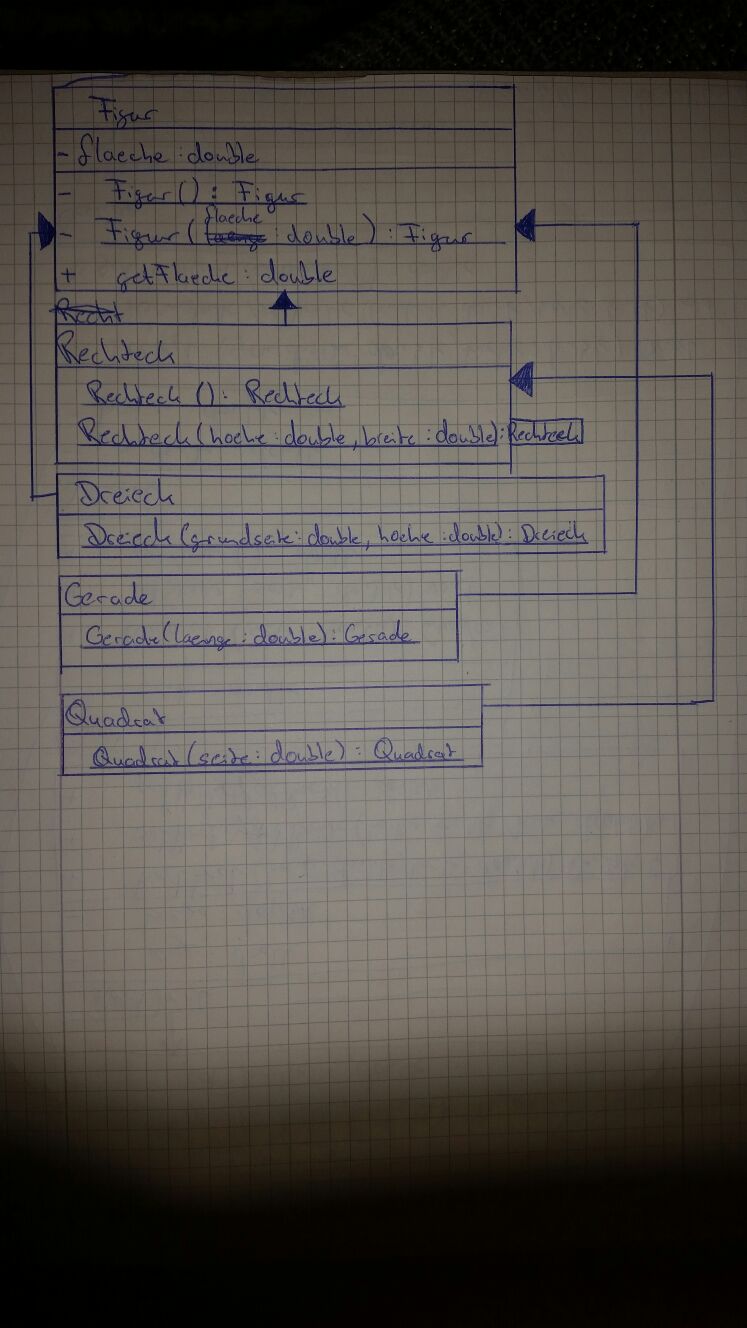 Figur
- flaeche : double
- Figur() : Figur
flaeche
- Figur(laenge : double) : Figur
+ getFlaeche : double
Recht
Rechteck
Rechteck () : Rechteck
Rechteck(hoehe : double, breite : double) : Rechteck
Dreieck
Dreieck (grundseite : double, hoehe : double) : Dreieck
Gerade
Gerade(laenge : double) : Gerade
Quadrat
Quadrat (seite : double) : Quadrat